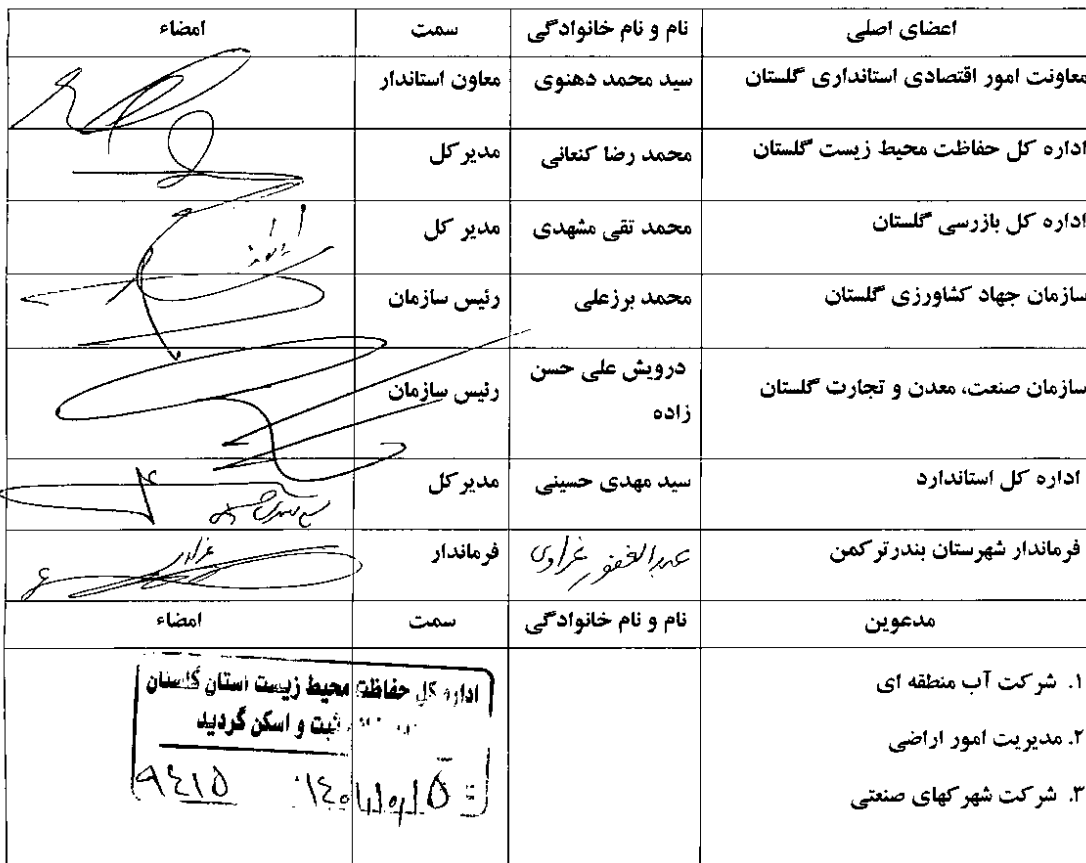 اعضای اصلی نام و نام خانوادگی سمت امضاء
معاونت امور اقتصادی استانداری گلستان سید محمد دهنوی معاون استاندار
اداره کل حفاظت محیط زیست گلستان محمد رضا کنعانی مدیر کل
اداره کل بازرسی گلستان محمد تقی مشهدی مدیر کل
سازمان جهاد کشاورزی گلستان محمد برزعلی رئیس سازمان
سازمان صنعت، معدن و تجارت گلستان درویش علی حسن رئیس سازمان
زاده
اداره کل استاندارد سید مهدی حسینی مدیر کل
فرماندار شهرستان بندرترکمن عبدالغفور غراوی فرماندار
مدعوین نام و نام خانوادگی سمت امضاء
۱. شرکت آب منطقه ای
۲. مدیریت امور اراضی
۳. شرکت شهرکهای صنعتی
اداره کل حفاظت محیط زیست استان گلستان
ثبت و اسکن گردید
۹۴۱۵